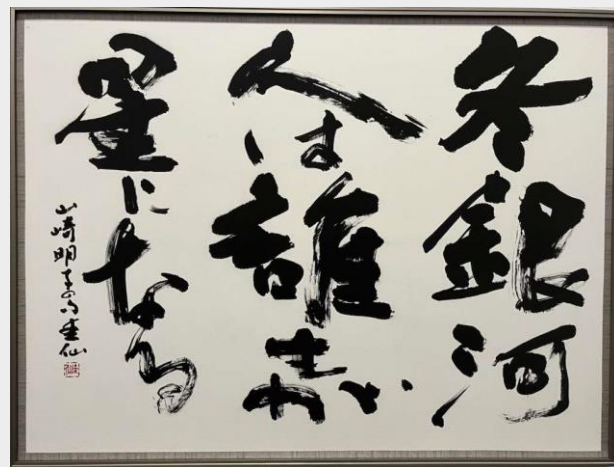 冬銀河
人は誰もが
星になる
山崎明子の句